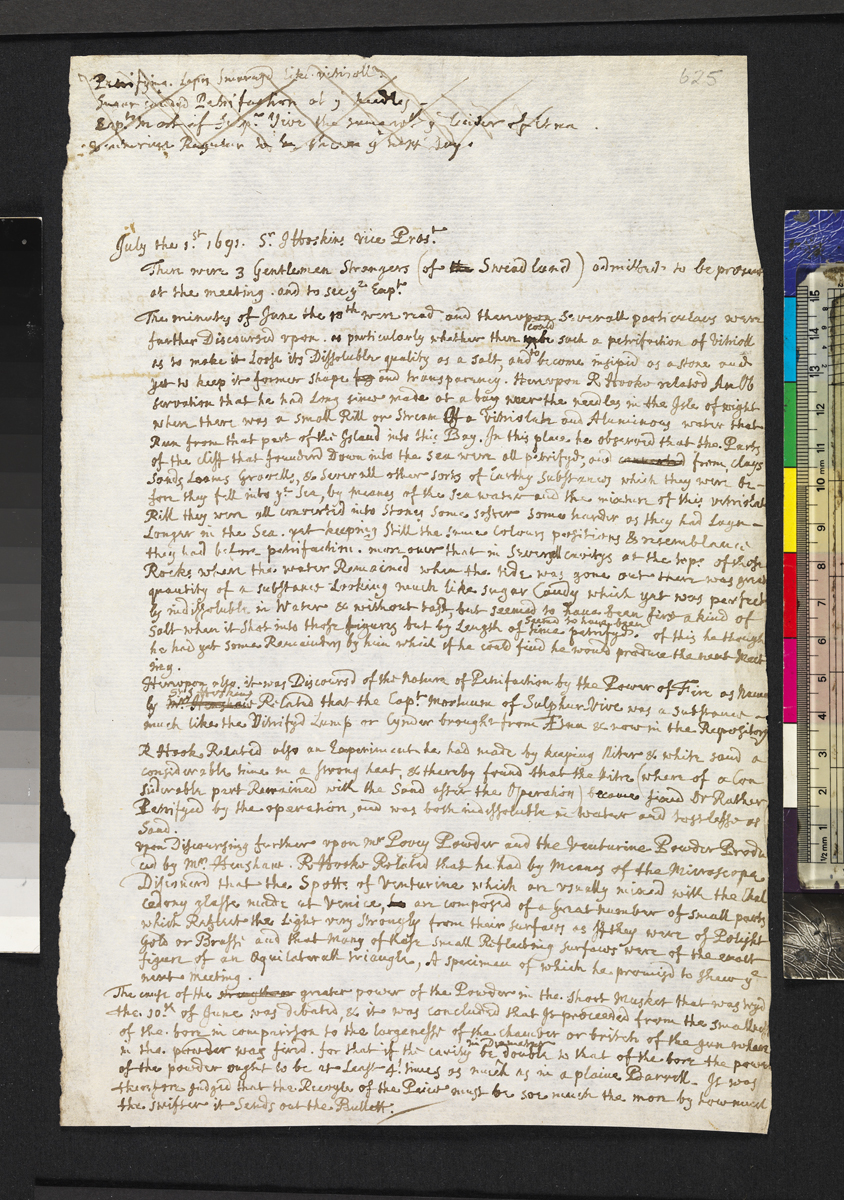 625
Petrifying. Lapis Smaragd like vitrioll.
Petrifaction at ye Needles
Capt Mort if the same wth ye Cinder of Etna.
July the 1.st 1691. Sr J Hoskins Vice Prest.
There were 3 Gentlemen Strangers (of the Sweadland) admitted to be present
at the meeting. and to see ye Expt.
The minutes of June the 10th were read and thereupon Severall particulars were
further Discoursed upon. as particularly whether there could be such a petrifaction of Vitrioll
as to make it Loose its Dissoluble quality as a salt, and become insipid as a stone and
yet to keep it former shape and transparency. Hereupon R Hooke related An Ob
servation that he had Long since made at a bay neer the needles in the Isle of wight
where there was a small Rill or Stream of a Vitriolate and Aluminous water that
Run from that part of the Island into this Bay. In this place he observed that the Parts
of the Cliff that foundred Down into the Sea were all petrifyd, and converted from clays
Sands Loams Gravells, & severall other sorts of Earthy Substances which they were be-
fore they fell into ye Sea, by means of the Sea water and the mixture of this vitriolat
Rill they were all converted into Stones some softer some harder as they had Layn
Longer in the Sea. yet keeping Still the same Colours positions & resemblance
they had before petrifaction. moreover that in Severall cavitys at the tops of those
Rocks where the water Remained when the tide was gone out there was great
quantity of a substance Looking much like sugar Candy which yet was perfect
ly indissoluble in Water & without tast, but seemed to have been first a kind of
Salt when it shot into those figures but by Length of time seems to have been petrifyd. of this he thought
he had yet some Remainders by him which if he could find he would produce the next Meet
ing.
Hereupon also it was Discoursd of the Nature of Petrifaction by the Power of Fire as
by Sr J Hoskins Mr Henshaw Related that the Capt. mortuum of Sulphur Vive was a Substance
much like the Vitrifyd Lump or Cynder brought from Ætna & now in the Repository
R Hook Related also an Experiment he had made by keeping Niter & white sand a
considerable time in a strong heat, & thereby found that the Nitre (where of a Con
siderable part Remained with the Sand after the Operation) became fixed Or Rather
Petrifyed by the operation, and was both indissoluble in water and tastlesse as
Sand.
upon Discoursing further upon Mr Povey Powder and the Venturine Powder Produ
ced by Mr. Henshaw. R Hooke Related that he had by Means of the Microscope
Discoverd that the Spotts of Venturine which are usually mixed with the Chal
cedony glasse made at Venice, are composed of a great number of small parts
which Reflect the Light very strongly from their surfaces as if they were of Polisht
Gold or Brasse and that many of these small Reflecting surfaces were of the exact
figure of an Equilaterall triangle, A specimen of which he promisd to shew ye
next meeting.
The cause of the strengthe greater power of the Powder in the Short Musket that was tryd
the 10.th of June was debated, & it was concluded that It proceeded from the smallness
of the bore in comparison to the largenesse of the chamber or britch of the gun where
in the powder was fired. for that if the cavity be in Diameter double to that of the bore the power
of the powder ought to be at Least 4. times as much as in a plaine Barrell. It was
therefore judged that the Recoyle of the Peice must be soe much the more by how much
the swifter it Sends out the Bullett.